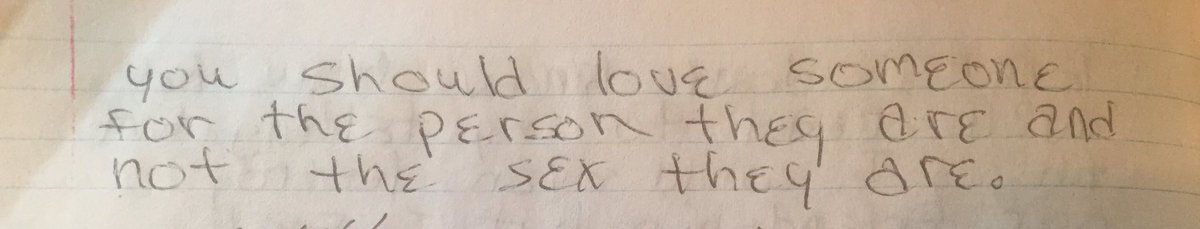 you should love someone
for the person they are and
not the sex they are.